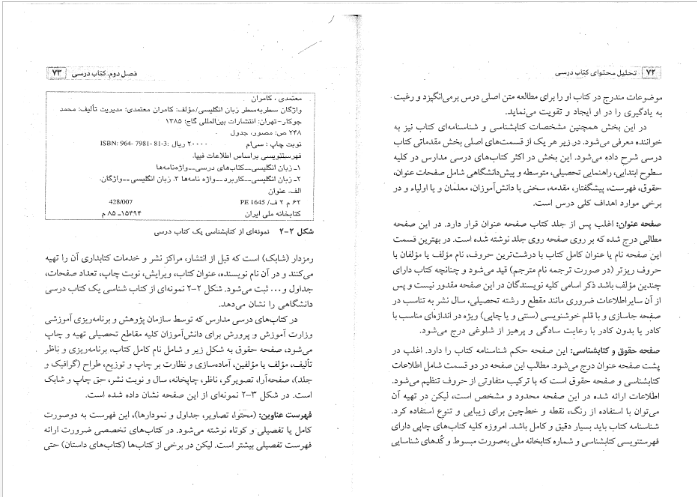 ۷۲ تحلیل محتوای کتاب درسی
موضوعات مندرج در کتاب او را برای مطالعه متن اصلی درس برمی‌انگیزد و رغبت
به یادگیری را در او ایجاد و تقویت می‌نماید.
در این بخش همچنین مشخصات کتابشناسی و شناسنامه‌ای کتاب نیز به
خواننده معرفی می‌شود. در زیر هر یک از قسمت‌های اصلی بخش مقدماتی کتاب
درسی شرح داده می‌شود. این بخش در اکثر کتاب‌های درسی مدارس در کلیه
سطوح ابتدایی، راهنمایی تحصیلی، متوسطه و پیش‌دانشگاهی شامل صفحات عنوان،
حقوق، فهرست، پیشگفتار، مقدمه، سخنی با دانش‌آموزان، معلمان و یا اولیاء و در
برخی موارد اهداف کلی درس است.
صفحه عنوان: اغلب پس از جلد کتاب صفحه عنوان قرار دارد. در این صفحه
مطالبی درج شده که بر روی صفحه روی جلد نوشته شده است. در بهترین قسمت
این صفحه نام یا عنوان کامل کتاب با درشت‌ترین حروف، نام مؤلف یا مؤلفان با
حروف ریزتر (در صورت ترجمه نام مترجم) قید می‌شود و چنانچه کتاب دارای
چندین مؤلف باشد ذکر اسامی کلیه نویسندگان در این صفحه مقدور نیست و پس
از آن سایر اطلاعات ضروری مانند مقطع و رشته تحصیلی، سال نشر به تناسب در
صفحه جاسازی و با قلم خوشنویسی (سنتی و یا چاپی) ویژه در اندازه‌ای مناسب با
کادر یا بدون کادر با رعایت سادگی و پرهیز از شلوغی درج می‌شود.
صفحه حقوق و کتابشناسی: این صفحه حکم شناسنامه کتاب را دارد. اغلب در
پشت صفحه عنوان درج می‌شود. مطالب این صفحه در دو قسمت شامل اطلاعات
کتابشناسی و صفحه حقوق است که با ترکیب متفاوتی از حروف تنظیم می‌شود.
اطلاعات ارائه شده در این صفحه محدود و مشخص است، لیکن در تهیه آن
می‌توان با استفاده از رنگ، نقطه و خط‌چین برای زیبایی و تنوع استفاده کرد.
شناسنامه کتاب باید بسیار دقیق و کامل باشد. امروزه کلیه کتاب‌های چاپی دارای
فهرستنویسی کتابشناسی و شماره کتابخانه ملی به‌صورت مبسوط و کُدهای شناسایی
فصل دوم. کتاب درسی ۷۳
معتمدی، کامران
واژگان سطربه‌سطر زبان انگلیسی/مؤلف: کامران معتمدی؛ مدیریت تألیف: محمد
جوکار.-تهران: انتشارات بین‌المللی گاج؛ ۱۳۸۵
۲۴۸ ص: مصور، جدول
نوبت چاپ: سی‌ام ۲۰۰۰۰ ریال: ISBN: 964-7981-81-3
فهرستنویسی براساس اطلاعات فیپا.
۱- زبان انگلیسی—کتاب‌های درسی—واژه‌نامه‌ها
۲- زبان انگلیسی—کاربرد—واژه نامه‌ها ۳. زبان انگلیسی—واژگان.
الف. عنوان
۶۲ م ۲ ف/ PE 1645 428/007
کتابخانه ملی ایران ۱۵۴۹۴-۸۵ م
شکل ۲-۲ نمونه‌ای از کتابشناسی یک کتاب درسی
رمزدار (شابک) است که قبل از انتشار، مراکز نشر و خدمات کتابداری آن را تهیه
می‌کنند و در آن نام نویسنده، عنوان کتاب، ویرایش، نوبت چاپ، تعداد صفحات،
جداول و... ثبت می‌شود. شکل ۲-۲ نمونه‌ای از کتاب شناسی یک کتاب درسی
دانشگاهی را نشان می‌دهد.
در کتاب‌های درسی مدارس که توسط سازمان پژوهش و برنامه‌ریزی آموزشی
وزارت آموزش و پرورش برای دانش‌آموزان کلیه مقاطع تحصیلی تهیه و چاپ
می‌شود، صفحه حقوق به شکل زیر و شامل نام کامل کتاب، برنامه‌ریزی و ناظر
تألیف، مؤلف یا مؤلفین، آماده‌سازی و نظارت بر چاپ و توزیع، طراح (گرافیک و
جلد)، صفحه‌آرا، تصویرگر، ناظر، چاپخانه، سال و نوبت نشر، حق چاپ و شابک
است. در شکل ۳-۲ نمونه‌ای از این صفحه نشان داده شده است.
فهرست عناوین: (محتوا، تصاویر، جداول و نمودارها)، این فهرست به دوصورت
کامل یا تفصیلی و کوتاه نوشته می‌شود. در کتاب‌های تخصصی ضرورت ارائه
فهرست تفصیلی بیشتر است. لیکن در برخی از کتاب‌ها (کتاب‌های داستان) حتی